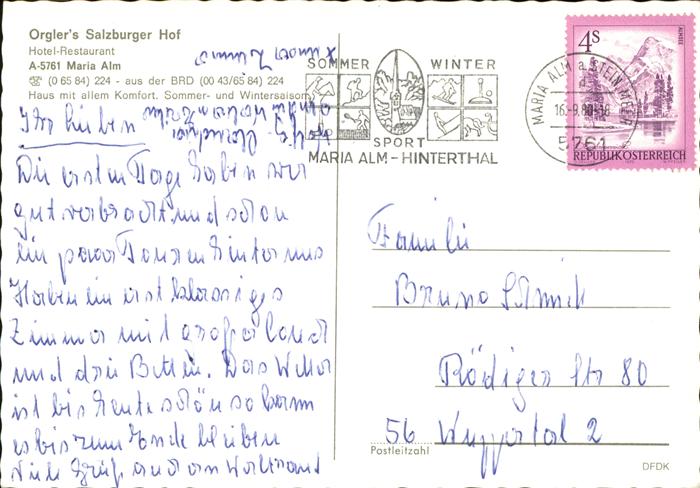 Orgler's Salzburger Hof
Hotel-Restaurant
A-5761 Maria Alm
☏ (0 65 84) 224 - aus der BRD (00 43/65 84) 224
Haus mit allem Komfort. Sommer- und Wintersaison
Ihr Lieben
Die ersten Tage haben wir
gut verbracht und schon
ein paar Touren hinter uns
Haben ein erstklassiges
Zimmer mit
und drei Betten. Das Wetter
ist bis heute schön so kann
es bis zum Ende bleiben
Viele Grüße
x unser Zimmer
SOMMER WINTER
SPORT
MARIA ALM - HINTERTHAL
MARIA ALM a. STEIN. MEER
16.-9.80-18
5761
4S
ALMSEE
REPUBLIK ÖSTERREICH
Familie
Bruno Schmidt
Rödiger Str 80
56 Wuppertal 2
Postleitzahl
DFDK